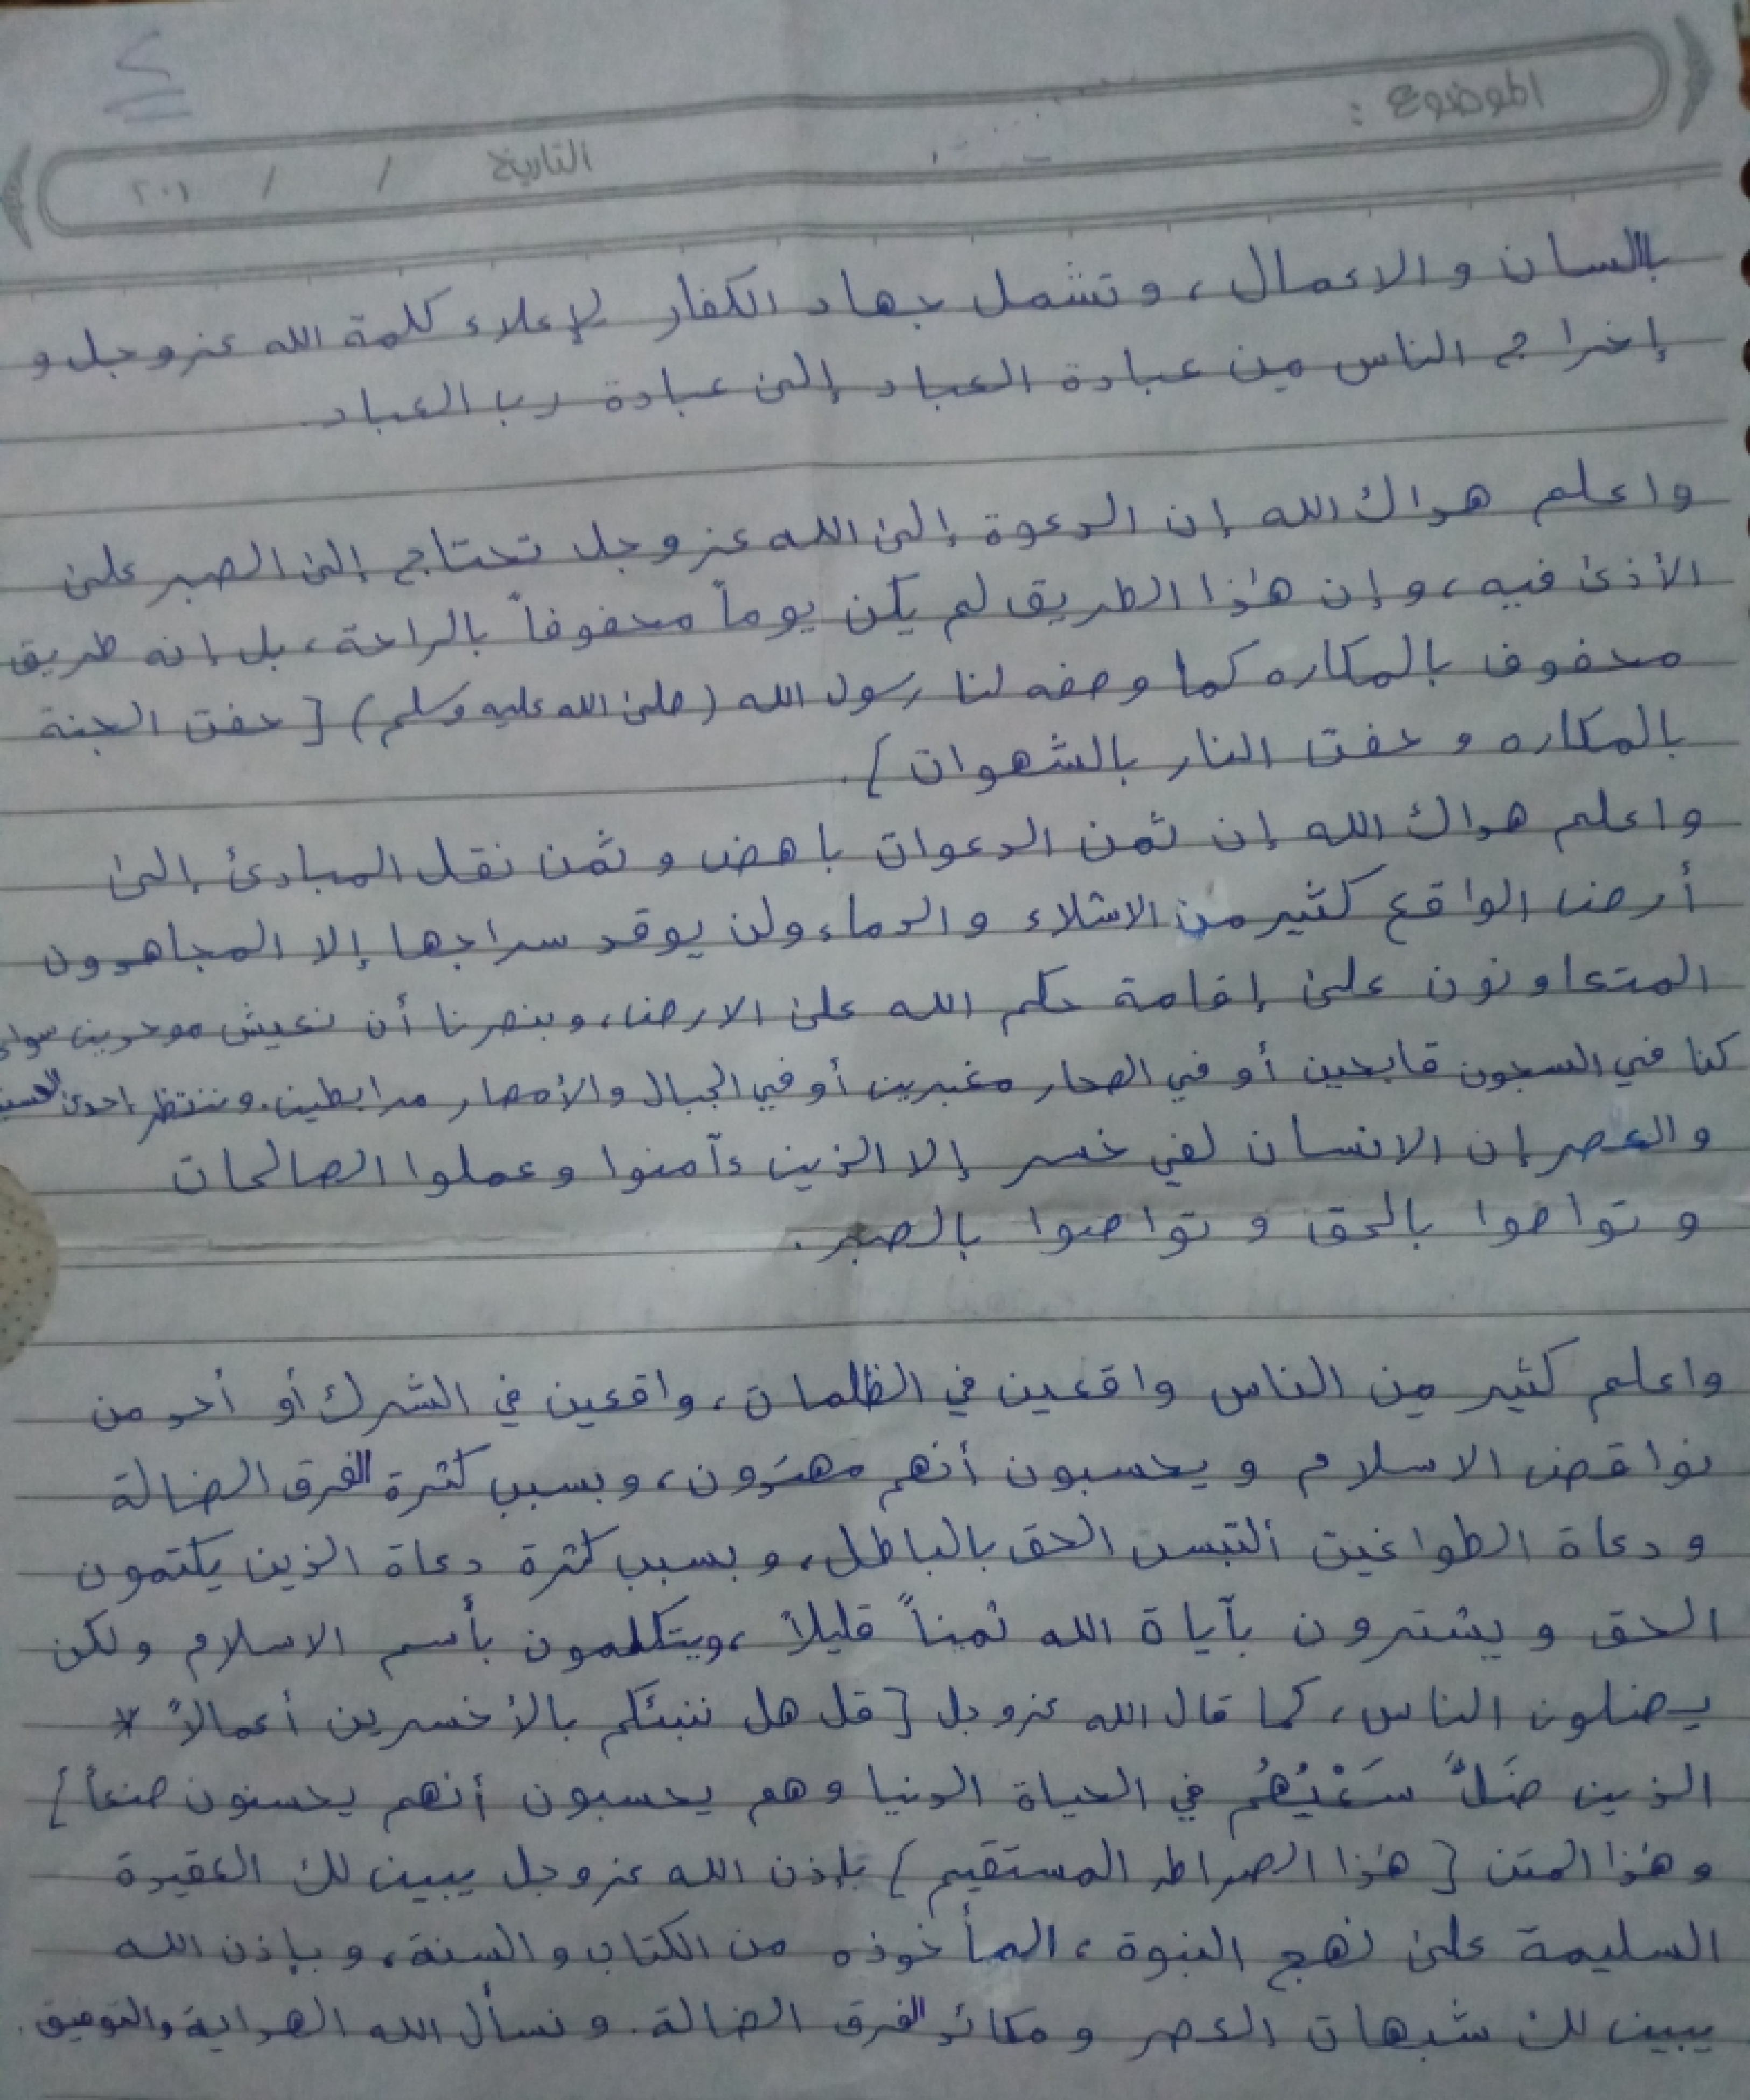 الموضوع :
التاريخ / / ٢٠١
باللسان و الاعمال ، و تشمل جهاد الكفار لإعلاء كلمة الله عزوجل و
إخراج الناس من عبادة العباد إلى عبادة رب العباد
واعلم هداك الله إن الدعوة إلى الله عزوجل تحتاج إلى الصبر على
الأذى فيه ، و إن هٰذا الطريق لم يكن يوماً محفوفاً بالراحة ، بل إنه طريق
محفوف بالمكاره كما وصفه لنا رسول الله (صلى الله عليه وسلم) [ حفت الجنة
بالمكاره و حفت النار بالشهوات ] .
واعلم هداك الله إن ثمن الدعوات باهض و ثمن نقل المبادئ إلى
أرض الواقع كثير من الاشلاء والدماء ولن يوقد سراجها إلا المجاهدون
المتعاونون على إقامة حكم الله على الارض ، و بنصرنا أن نعيش موحدين سواء
كنا في السجون قابعين أو في الصحار مغبرين أو في الجبال والأمصار مرابطين . و ننتظر إحدى
والعصر إن الانسان لفي خسر إلا الذين ءآمنوا و عملوا الصالحات
و تواصوا بالحق و تواصوا بالصبر .
واعلم كثير من الناس واقعين في الظلمات ، واقعين في الشرك أو أحد من
نواقض الاسلام و يحسبون أنهم مهتدون ، و بسبب كثرة الفرق الضالة
و دعاة الطواغيت ألتبس الحق بالباطل ، و بسبب كثرة دعاة الذين يكتمون
الحق و يشترون بآياة الله ثمناً قليلاً ، ويتكلمون بأسم الاسلام ولكن
يضلون الناس ، كما قال الله عزوجل [ قل هل ننبئكم بالأخسرين أعمالاً *
الذين ضَلَّ سَعْيُهُم في الحياة الدنيا و هم يحسبون أنهم يحسنون صنعاً ]
و هٰذا المتن [ هٰذا الصراط المستقيم ] بإذن الله عزوجل يبين لك العقيدة
السليمة على نهج النبوة ، المأخوذه من الكتاب و السنة ، و بإذن الله
يبين لك شبهات العصر و مكائد الفرق الضالة . و نسأل الله الهداية والتوفيق .